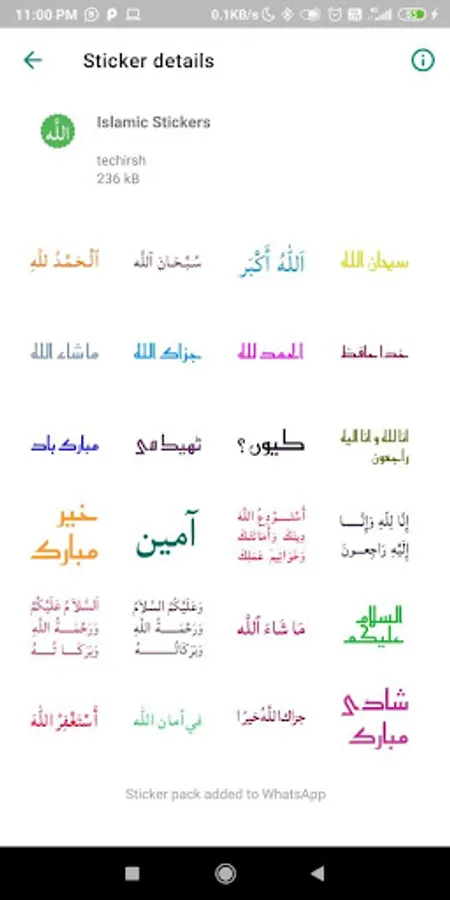 11:00 PM
0.1KB/s
Sticker details
الله
Islamic Stickers
techirsh
236 kB
اَلْحَمْدُ لِلّٰهِ
سُبْحَانَ اَللّٰه
اَللّٰهُ أَكْبَر
سبحان اللہ
ما شاء اللہ
جزاک اللہ
الحمد للہ
خدا حافظ
مبارک باد
ٹھیک ہے
کیوں؟
انا للہ و انا الیہ
راجعون
خیر
مبارک
آمین
أَسْتَوْدِعُ اللّٰهَ
دِينَكَ وَأَمَانَتَكَ
وَخَوَاتِيْمَ عَمَلِكَ
إِنَّا لِلّٰهِ وَإِنَّا
إِلَيْهِ رَاجِعُونَ
اَلسَّلَامُ عَلَيْكُمْ
وَرَحْمَةُ اللّٰهِ
وَبَرَكَاتُهُ
وَعَلَيْكُمُ السَّلَامُ
وَرَحْمَةُ اللّٰهِ
وَبَرَكَاتُهُ
مَا شَاءَ اَللّٰه
السلام
علیکم
أَسْتَغْفِرُ اللّٰهَ
في أمان الله
جزاك اللّٰهُ خيرًا
شادی
مبارک
Sticker pack added to WhatsApp